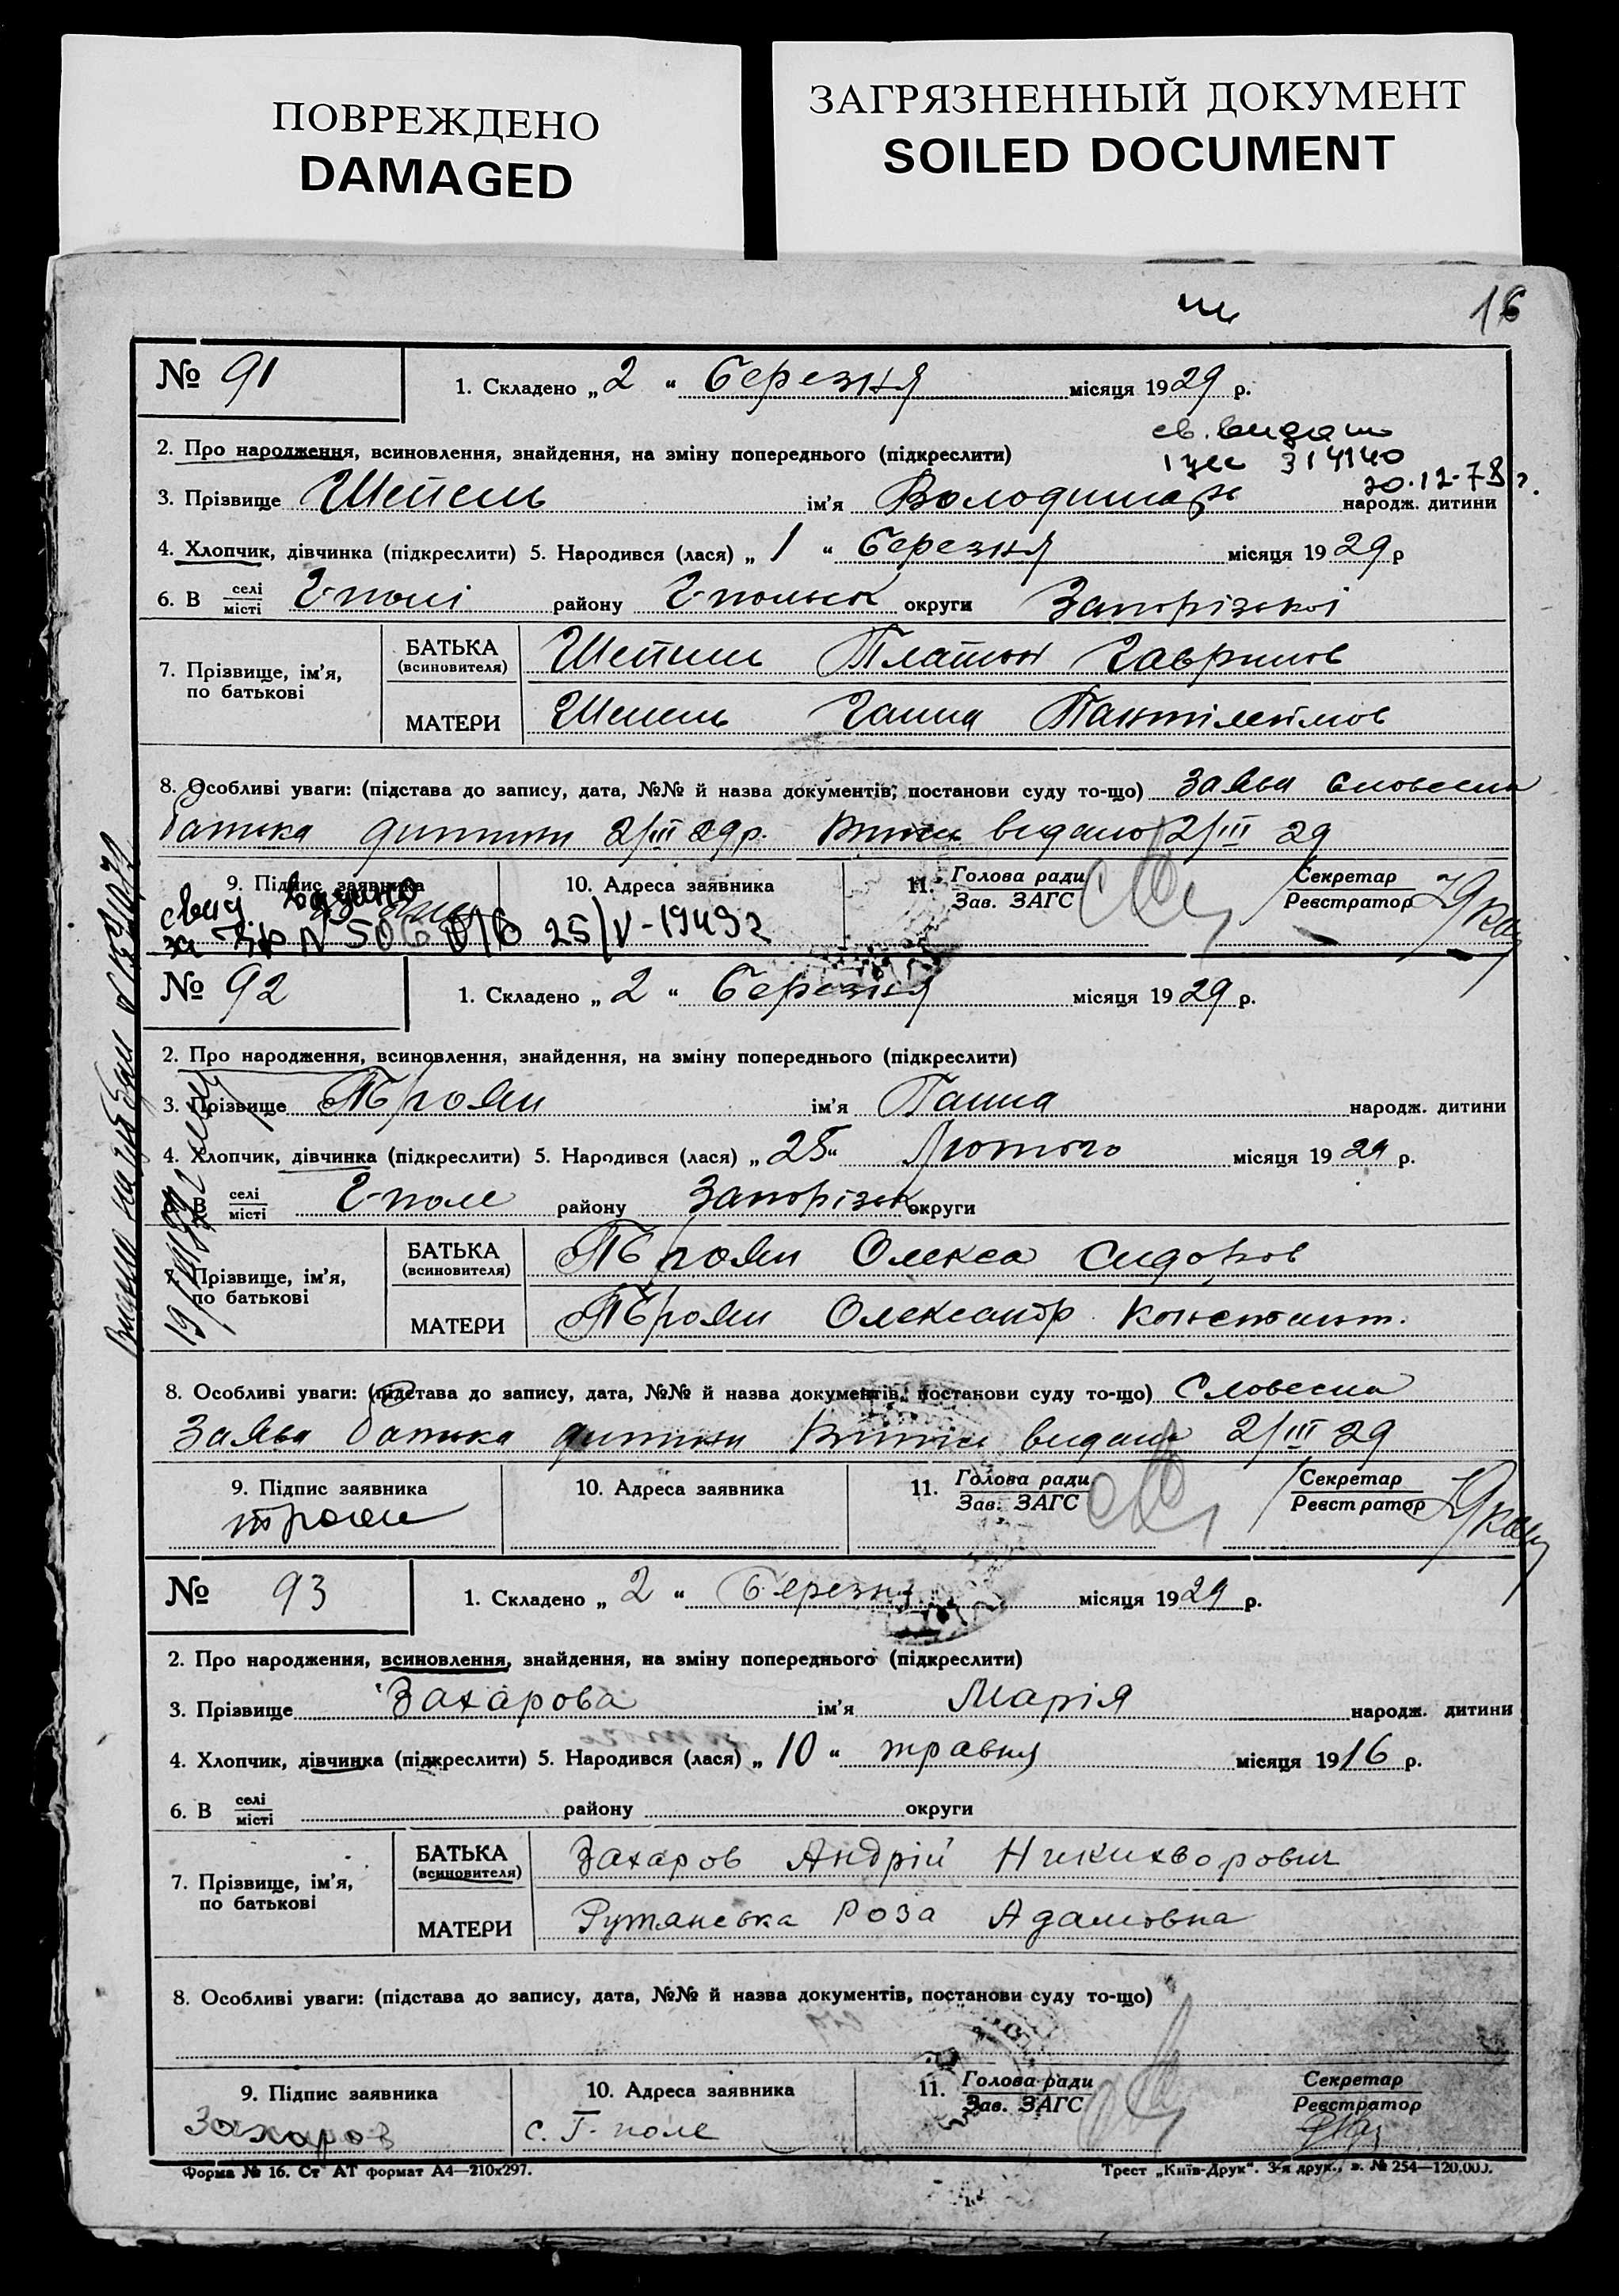 ПОВРЕЖДЕНО
DAMAGED
ЗАГРЯЗНЕННЫЙ ДОКУМЕНТ
SOILED DOCUMENT
16
№ 91
1. Складено „ 2 “ Березня місяця 1929 р.
2. Про народження, всиновлення, знайдення, на зміну попереднього (підкреслити)
3. Прізвище Шепель ім'я Володимир народж. дитини
20.12-78 г.
4. Хлопчик, дівчинка (підкреслити) 5. Народився (лася) „ 1 “ Березня місяця 1929 р
6. В селі/місті Г-полі району Г-польск округи Запорізької
7. Прізвище, ім'я, по батькові
БАТЬКА (всиновителя) Шепель Платон Гаврилов
МАТЕРИ Шепель Ганна Пантілеймов
8. Особливі уваги: (підстава до запису, дата, №№ й назва документів, постанови суду то-що) Заява словесна
батька дитини 2/III 29 р. Витяг видано 2/III 29
9. Підпис заявника
10. Адреса заявника
11. Голова ради/Зав. ЗАГС
Секретар/Реєстратор
№ 92
1. Складено „ 2 “ Березня місяця 1929 р.
2. Про народження, всиновлення, знайдення, на зміну попереднього (підкреслити)
3. Прізвище Троян ім'я Ганна народж. дитини
4. Хлопчик, дівчинка (підкреслити) 5. Народився (лася) „ 28 “ Лютого місяця 1929 р.
6. В селі/місті Г-поле району Запорізьк округи
7. Прізвище, ім'я, по батькові
БАТЬКА (всиновителя) Троян Олекса Сидоров
МАТЕРИ Троян Олександр Констант.
8. Особливі уваги: (підстава до запису, дата, №№ й назва документів, постанови суду то-що) Словесна
Заява батька дитини Витяг видано 2/III 29
9. Підпис заявника
Троян
10. Адреса заявника
11. Голова ради/Зав. ЗАГС
Секретар/Реєстратор
№ 93
1. Складено „ 2 “ Березня місяця 1929 р.
2. Про народження, всиновлення, знайдення, на зміну попереднього (підкреслити)
3. Прізвище Захарова ім'я Марія народж. дитини
4. Хлопчик, дівчинка (підкреслити) 5. Народився (лася) „ 10 “ травня місяця 1916 р.
6. В селі/місті району округи
7. Прізвище, ім'я, по батькові
БАТЬКА (всиновителя) Захаров Андрій Никихворович
МАТЕРИ Ружанська Роза Адамовна
8. Особливі уваги: (підстава до запису, дата, №№ й назва документів, постанови суду то-що)
9. Підпис заявника
Захаров
10. Адреса заявника
с. Г-поле
11. Голова ради/Зав. ЗАГС
Секретар/Реєстратор
Форма № 16. Ст АТ формат А4—210х297.
Трест „Київ-Друк“. 3-я друк., з. № 254—120,000.